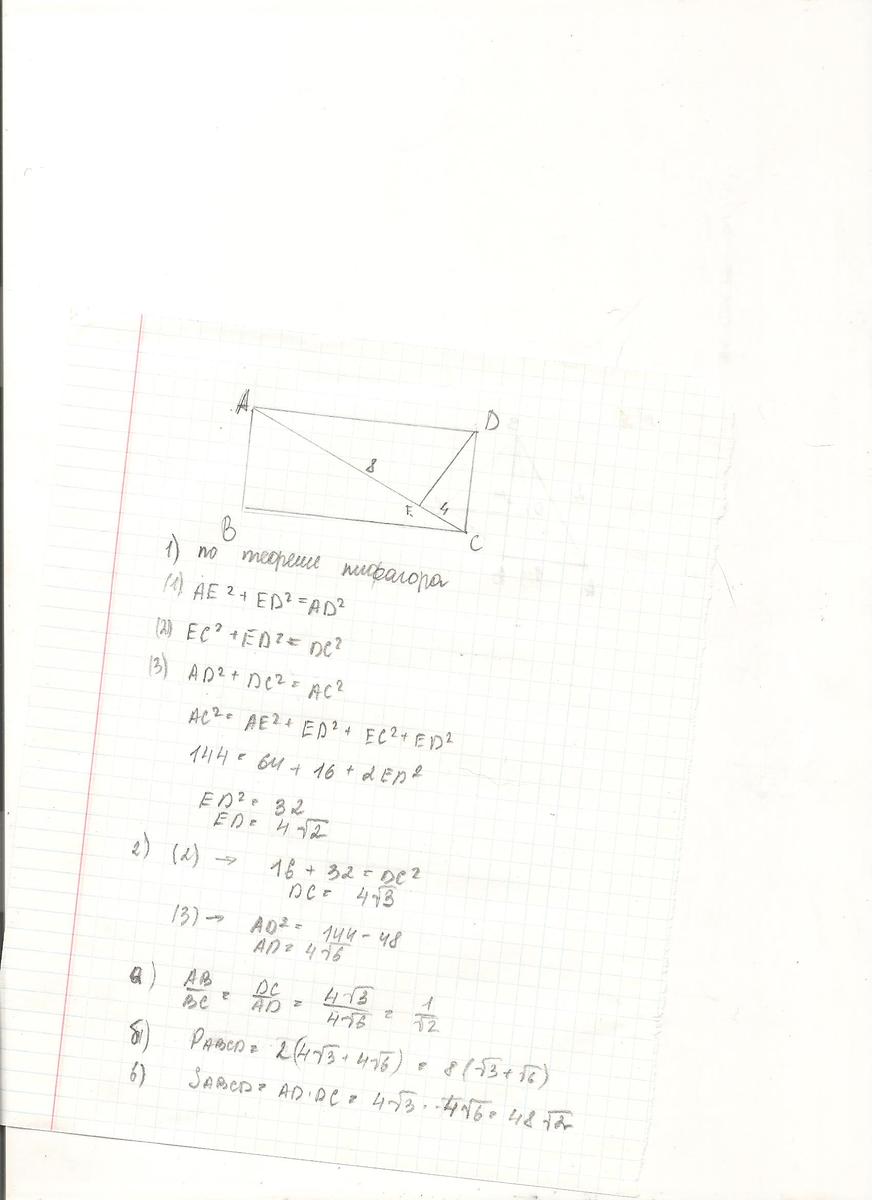 A
D
8
E
4
B
C
1) по теореме пифагора
(1) AE² + ED² = AD²
(2) EC² + ED² = DC²
(3) AD² + DC² = AC²
AC² = AE² + ED² + EC² + ED²
144 = 64 + 16 + 2ED²
ED² = 32
ED = 4√2
2) (2) → 16 + 32 = DC²
DC = 4√3
(3) → AD² = 144 - 48
AD = 4√6
а) AB/BC = DC/AD = 4√3/4√6 = 1/√2
б) PABCD = 2(4√3 + 4√6) = 8(√3 + √6)
в) SABCD = AD · DC = 4√3 · 4√6 = 48√2